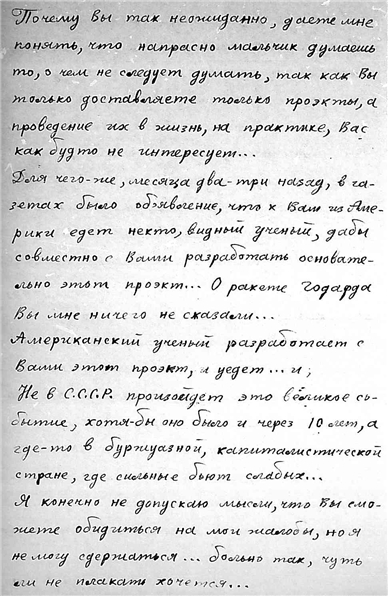 Почему Вы так неожиданно, даете мне
понять, что напрасно мальчик думаешь
то, о чем не следует думать, так как Вы
только доставляете только проэкты, а
проведение их в жизнь, на практике, Вас
как будто не интересует...
Для чего-же, месяца два-три назад, в га-
зетах было объявление, что к Вам из Аме-
рики едет некто, видный ученый, дабы
совместно с Вами разработать основате-
льно этот проэкт... О ракете Годарда
Вы мне ничего не сказали...
Американский ученый разработает с
Вами этот проэкт, и уедет... и;
Не в С.С.С.Р. произойдет это великое со-
бытие, хотя-бы оно было и через 10 лет, а
где-то в буржуазной, капиталистической
стране, где сильные бьют слабых...
Я конечно не допускаю мысли, что Вы смо-
жете обидиться на мои жалобы, но я
не могу сдержаться... больно так, чуть
ли не плакать хочется...